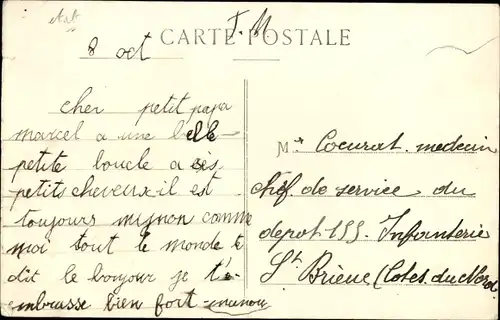 F. M.
CARTE POSTALE
8 oct
cher petit papa
marcel a une belle
petite boucle a ses
petits cheveux - il est
toujours mignon comme
moi tout le monde te
dit le bonjour je t'e-
mbrasse bien fort -
Mr Coeurat. medecin
chef de service du
depot 155. Infanterie
St. Brieuc (Cotes du Nord